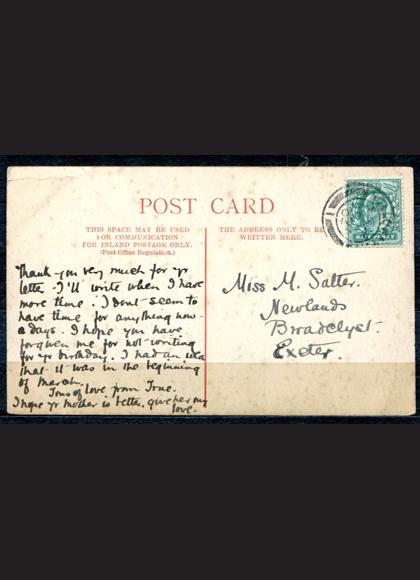 POST CARD
THIS SPACE MAY BE USED
FOR COMMUNICATION
FOR INLAND POSTAGE ONLY.
(Post Office Regulation.)
THE ADDRESS ONLY TO BE
WRITTEN HERE.
Thank you very much for yr
letter. I'll write when I have
more time. I dont seem to
have time for anything now-
a days. I hope you have
forgiven me for not writing
for yr birthday. I had an idea
that it was in the beginning
of March.
Tons of love from
I hope yr mother is better. give her my
love.
Miss M. Salter.
Newlands
Broadclyst.
Exeter.